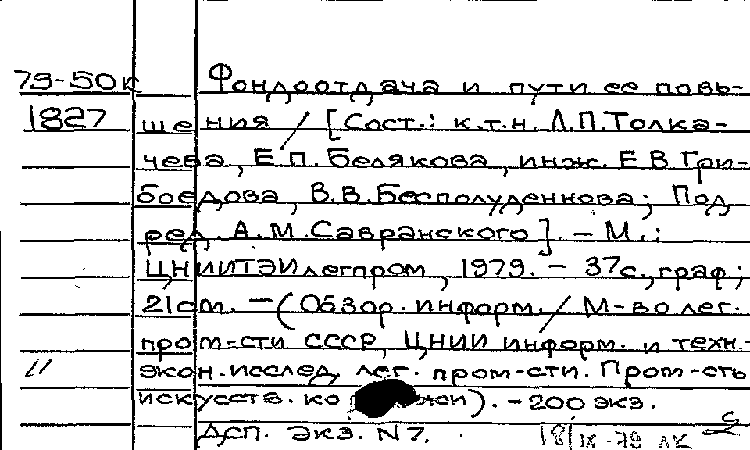 79-50к Фондоотдача и пути ее повы-
1827 шения / [Сост.: к.т.н. Л.П.Толка-
чева, Е.П.Белякова, инж. Е.В.Гри-
боедова, В.В.Бесполуденнова; Под
ред. А.М.Савранского]. - М.:
ЦНИИТЭИлегпром, 1979. - 37с., граф;
21см. - (Обзор. информ. / М-во лег.
пром-сти СССР, ЦНИИ информ. и техн.-
экон. исслед. лег. пром-сти. Пром-сть
искусств. ко). - 200 экз.
ДСП. Экз. N 7.